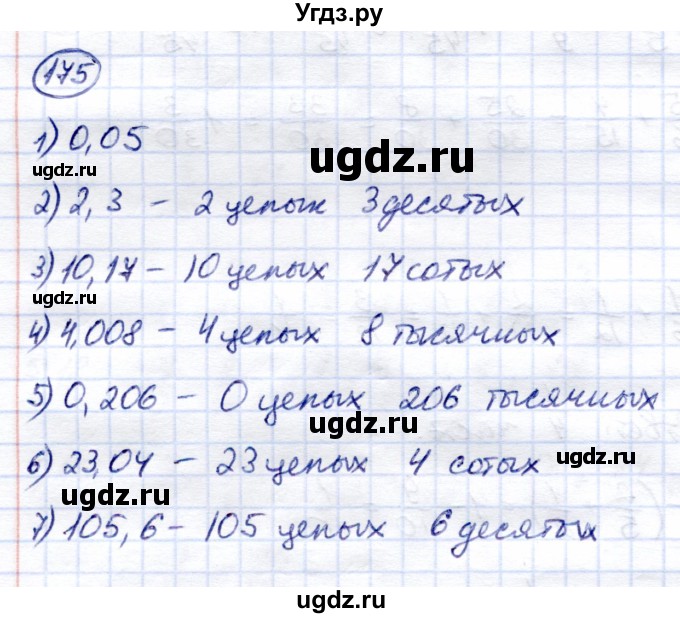 Угдз.ру
175
1) 0,05
ugdz.ru
ugdz.ru
2) 2,3 – 2 целых 3 десятых
3) 10,17 – 10 целых 17 сотых
ugdz.ru
4) 4,008 – 4 целых 8 тысячных
5) 0,206 – 0 целых 206 тысячных
ugdz.ru
6) 23,04 – 23 целых 4 сотых
ugdz.ru
ugdz.ru
7) 105,6 – 105 целых 6 десятых
ugdz.ru
ugdz.ru